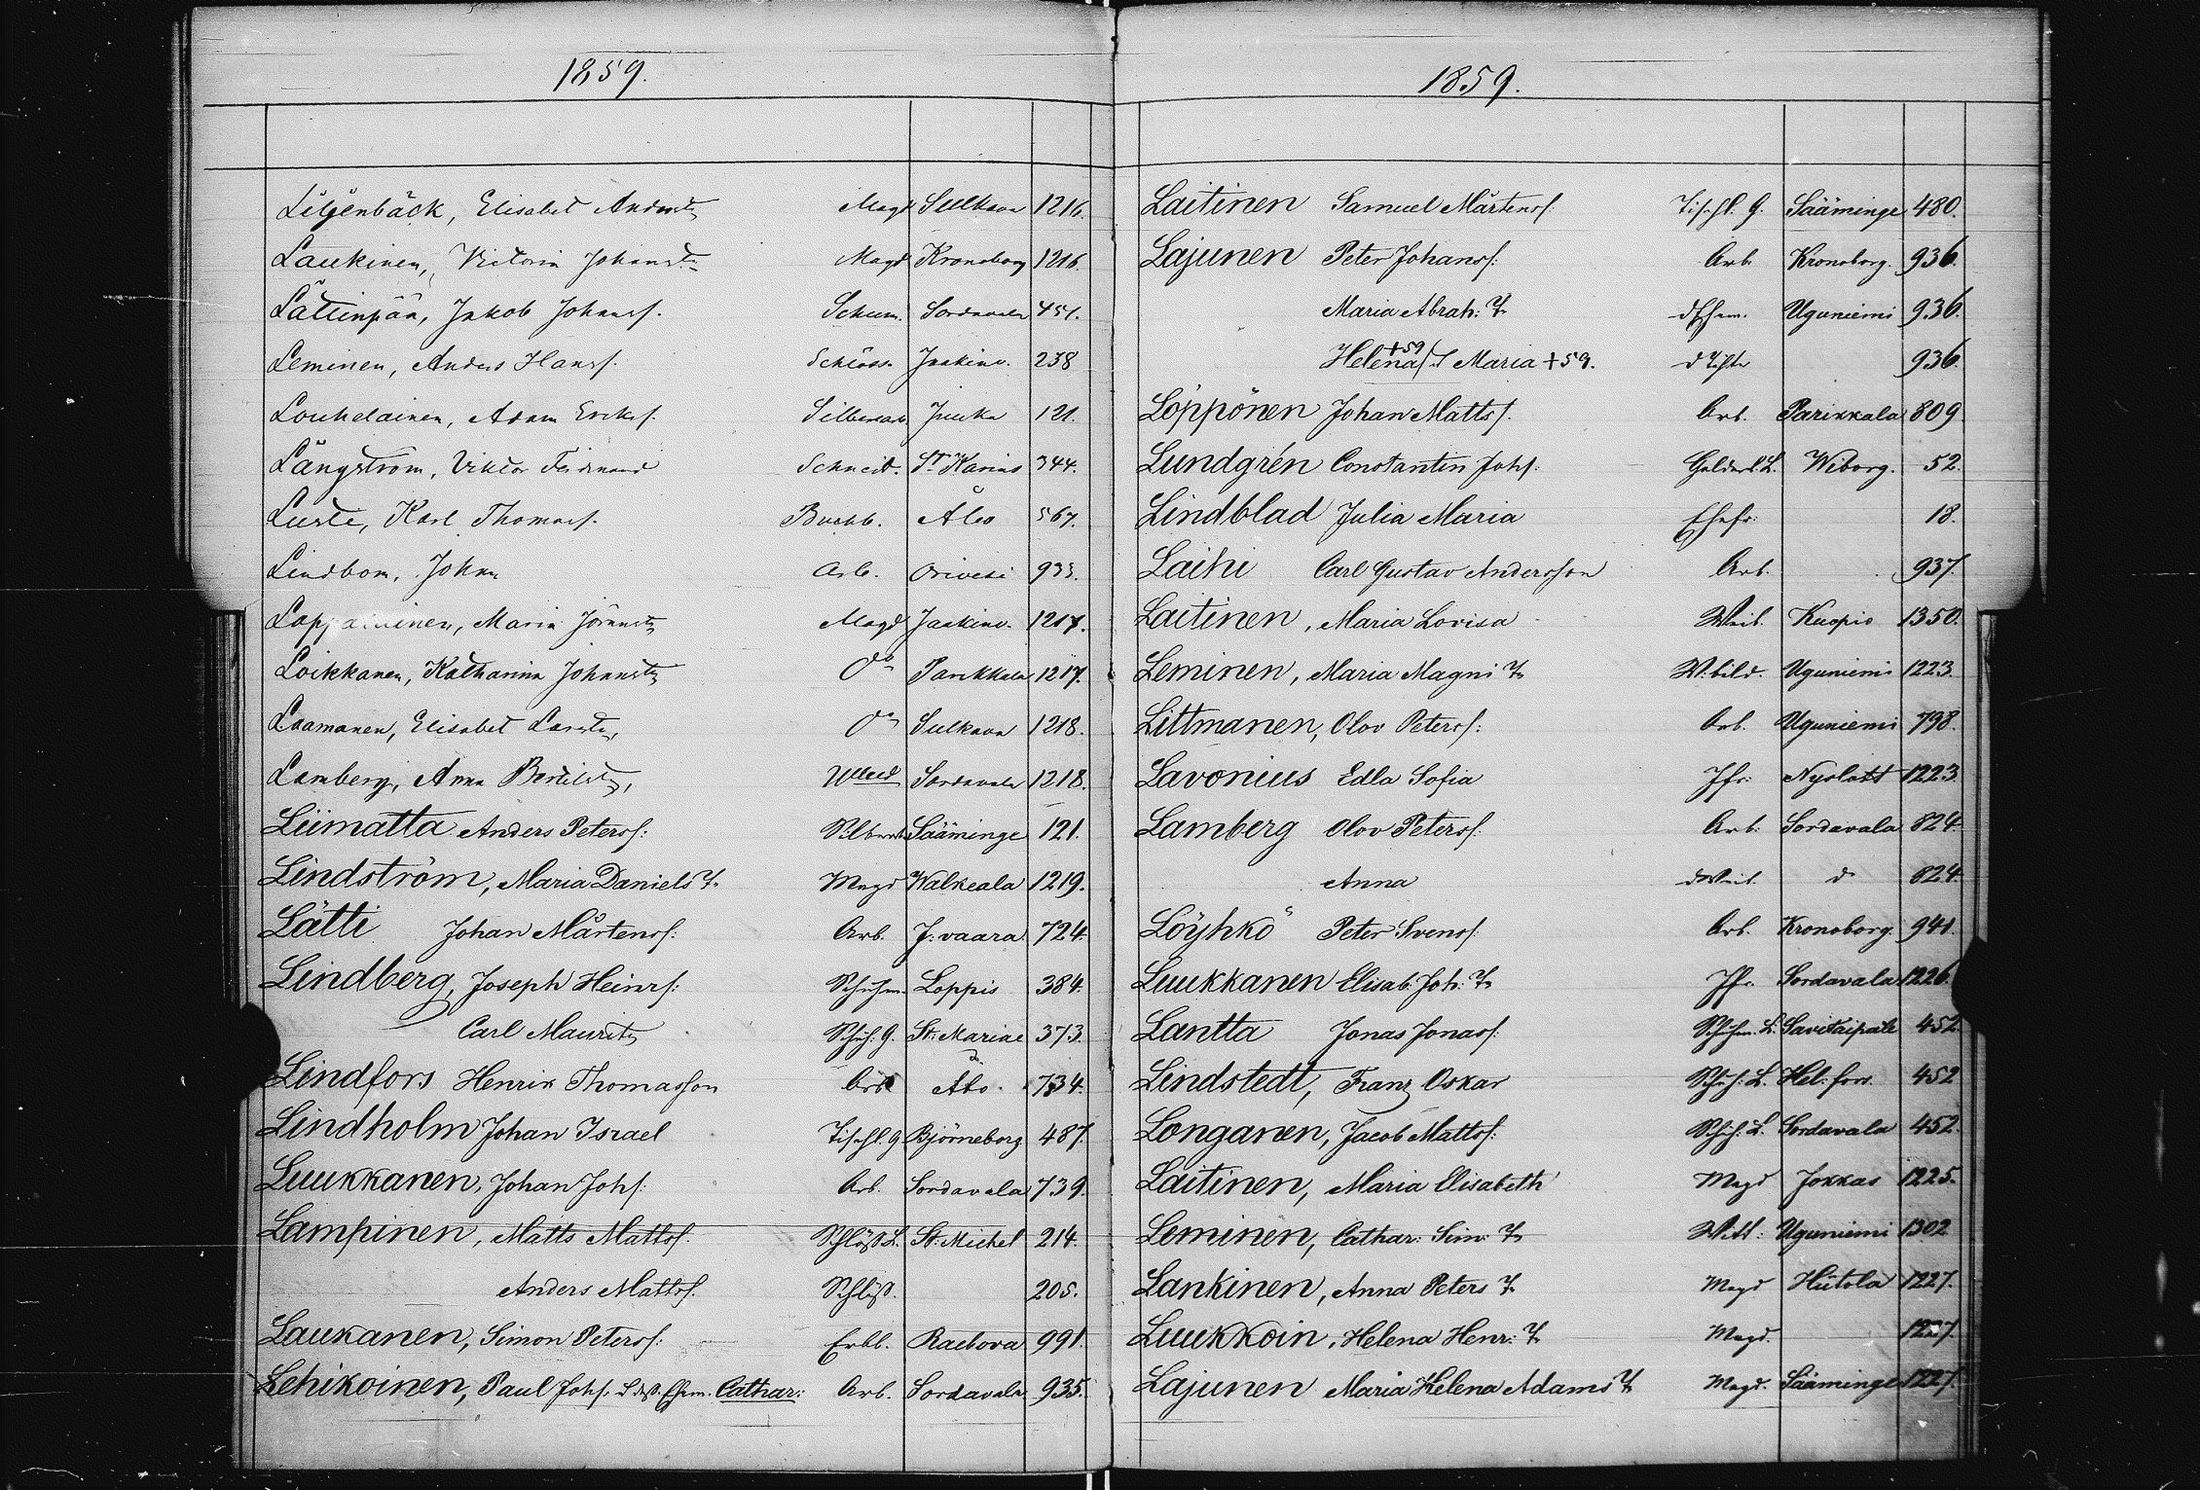 1859.
Liljenbäck, Elisabet Andrstr Magd Sulkava 1216.
Laukinen, Victoria Johanstr Magd Kronoborg 1216.
Lättinpää, Jakob Johansf. Schum. Sordavala 451.
Leminen, Anders Hansf. Schloss. Jaakim. 238
Louhelainen, Adam Ericsf. Silberarb. Juuka 121.
Långström, Viktor Ferdinand Schneid. St Karins 344.
Luste, Karl Thomasf. Buchb. Åbo 567.
Lindbom, Johan Arb. Orivesi 933.
Lappalainen, Maria Magd Jaakim. 1217.
Loikkanen, Katharina Johanstr do Parikkala 1217.
Laamanen, Elisabet Larstr, do Sulkava 1218.
Lamberg, Anna Bertilstr, Sordavala 1218.
Liimatta Anders Petersf: Silberarb Sääminge 121.
Lindström, Maria Daniels Tr Magd Walkeala 1219.
Lätti Johan Mårtensf: Arb. J:vaara 724.
Lindberg, Joseph Heinrf: Schuhm. Loppis 384.
Carl Mauritz Schuh. G. St: Mariae 373.
Lindfors Henrik Thomasson Arb Åbo. 734.
Lindholm Johan Israel Tischl. G Björneborg 487.
Luukkanen, Johan Johf: Arb. Sordavala 739.
Lampinen, Matts Mattsf. Schlöß L. St: Michel 214.
Anders Mattsf. Schlöß. 205.
Laukanen, Simon Petersf: Erbb. Raebova 991.
Lehikoinen, Paul Johf. Ehem. Cathar: Arb. Sordavala 935.
1859.
Laitinen Samuel Mårtensf. Tischl. G. Sääminge 480.
Lajunen Peter Johansf: Arb. Kronoborg. 936.
Maria Abrah: Tr d Ehem. Uguniemi 936.
Helena +59 Maria +59. d Tchtr 936.
Löppönen Johan Mattsf. Arb. Parikkala 809
Lundgrén Constantin Johf: Golders L. Wiborg. 52.
Lindblad Julia Maria Ehefr: 18.
Laihi Carl Gustav Andersson Arb. 937.
Laitinen, Maria Lovisa Weib. Kuopio 1350.
Leminen, Maria Magni Tr W. bild. Uguniemi 1223.
Littmanen, Olov Petersf: Arb. Uguniemi 798.
Lavonius Edla Sofia Jfr: Nyslott 1223.
Lamberg Olov Petersf: Arb: Sordavala 824.
Anna d Weib. do 824.
Löyhkö Peter Svensf. Arb. Kronoborg. 941.
Luukkanen Elisab. Joh: Tr Jfr. Sordavala 1226.
Lantta Jonas Jonasf. Schuhm. L. Savitaipale 452
Lindstedt, Franz Oskar Schuh: L. Hel:fors. 452
Longanen, Jacob Mattsf: Schuh: L. Sordavala 452.
Laitinen, Maria Elisabeth Magd Jokkas 1225.
Leminen, Cathar: Sim: Tr Witt: Uguniemi 1302
Lankinen, Anna Peters Tr Magd Hiitola 1227.
Luukkoin, Helena Henr: Tr Magd. 1227.
Lajunen Maria Helena Adams Tr Magd. Sääminge 1227.